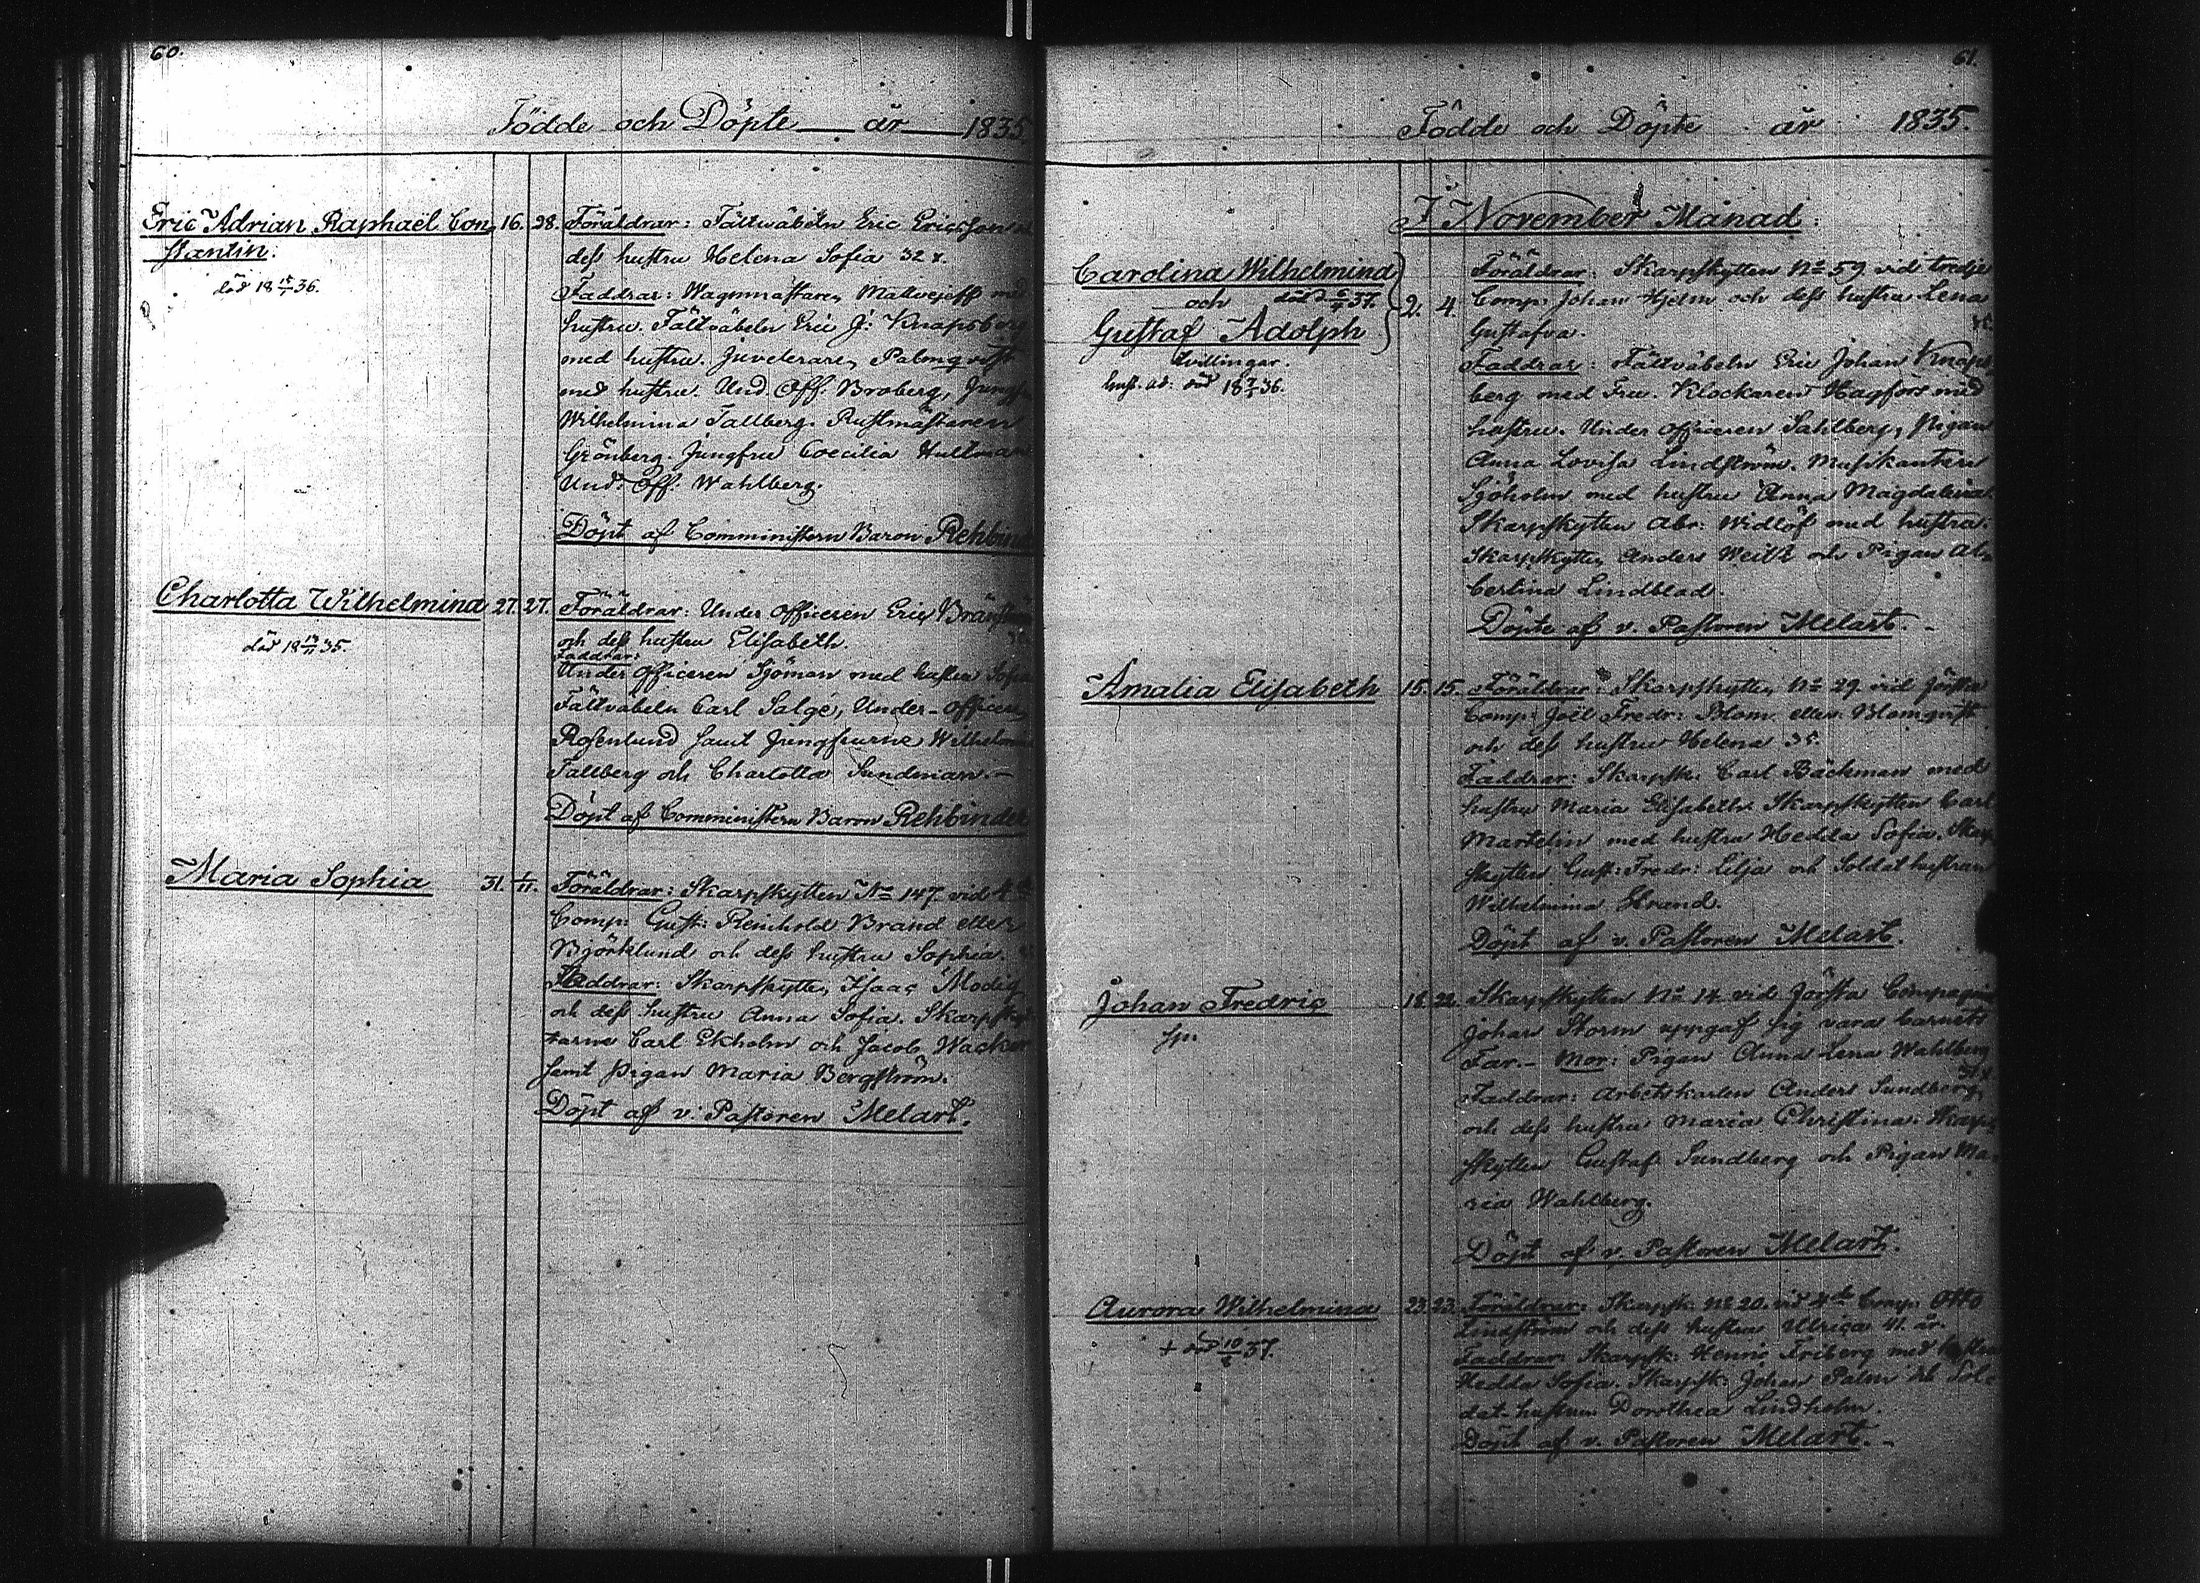 60.
Födde och Döpte år 1835
Eric Adrian Raphaël Con
stantin.
död 18 15/1 36.
16. 28. Föräldrar: Fältväbeln Eric Ericsson
dess hustru Helena Sofia 32
Faddrar: Wagnmästaren Matvejeff med
hustru. Fältväbeln Eric J: Knapsberg
med hustru. Juveleraren Palmqvist
med hustru. Und. Off. Broberg, Jungfr
Wilhelmina Tallberg. Rustmästaren
Grönberg. Jungfru Coecilia Hultman
Und. Off. Wahlberg.
Döpt af Comministern Baron Rehbinder
Charlotta Wilhelmina
död 18 /11 35.
27. 27. Föräldrar: Under Officeren Eric
och dess hustru Elisabeth.
Faddrar:
Under Officeren Sjöman med hustru Sofia
Fältväbeln Carl Salgé, Under-Officer
Rosenlund samt Jungfrurne Wilhelmina
Tallberg och Charlotta Sundman.
Döpt af Comministern Baron Rehbinder
Maria Sophia
31. 1/11. Föräldrar: Skarpskytten No 147 vid 4
Comp: Gust: Reinhold Brand eller
Björklund och dess hustru Sophia.
Faddrar: Skarpskytten Isaac Modig
och dess hustru Anna Sofia. Skarpsky
tarne Carl Ekholm och Jacob Wacker
samt Pigan Maria Bergström.
Döpt af v: Pastoren Melart.
61.
Födde och Döpte år 1835.
I November Månad.
Carolina Wilhelmina
och död 37.
Gustaf Adolph
tvillingar.
Gust. ad: död 18 36.
2. 4. Föräldrar: Skarpskytten No 59 vid tredje
Comp: Johan Hjelm och dess hustru Lena
Gustafva.
Faddrar: Fältväbeln Eric Johan Knaps
berg med Fru. Klockaren Hagfors med
hustru. Under officeren Sahlberg, Pigan
Anna Lovisa Lindström. Musikanten
Sjöholm med hustru Anna Magdalena
Skarpskytten Abr: Widlöf med hustru.
Skarpskytten Anders och Pigan Al
bertina Lindblad.
Döpte af v. Pastoren Melart.
Amalia Elisabeth
15. 15. Föräldrar: Skarpskytten No 29. vid första
Comp: Joël Fredr: Blom eller Blomqvist
och dess hustru Helena 35.
Faddrar: Skarpsk: Carl Bäckman med
hustru Maria Elisabeth. Skarpskytten Carl
Martelin med hustru Hedda Sofia. Skarp
skytten Gust: Fredr: Lilja och Soldathustrun
Wilhelmina Strand.
Döpt af v. Pastoren Melart.
Johan Fredric
18. 22. Skarpskytten No 14 vid Första Compagni
Johan Storm uppgaf sig vara Barnets
Far. - Mor: Pigan Anna Lena Wahlberg
Faddrar: Arbetskarlen Anders Sundberg,
och dess hustru Maria Christina. Skarp
skytten Gustaf Sundberg och Pigan Ma
ria Wahlberg.
Döpt af v. Pastoren Melart.
Aurora Wilhelmina
+ död 10/6 37.
23. 23. Föräldrar: Skarpsk. No 20. vid Comp: Otto
Lindström och dess hustru Ulrica 41. år
Faddrar: Skarpsk: Henric Friberg med hustru
Hedda Sofia. Skarpsk: Johan Palm och Sol
dat-hustrun Dorothea Lindholm.
Döpt af v. Pastoren Melart.